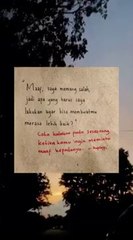 "Maaf, saya memang salah,
jadi apa yang harus saya
lakukan agar bisa membuatmu
merasa lebih baik?"
Coba katakan pada seseorang,
ketika kamu ingin meminta
maaf kepadanya.